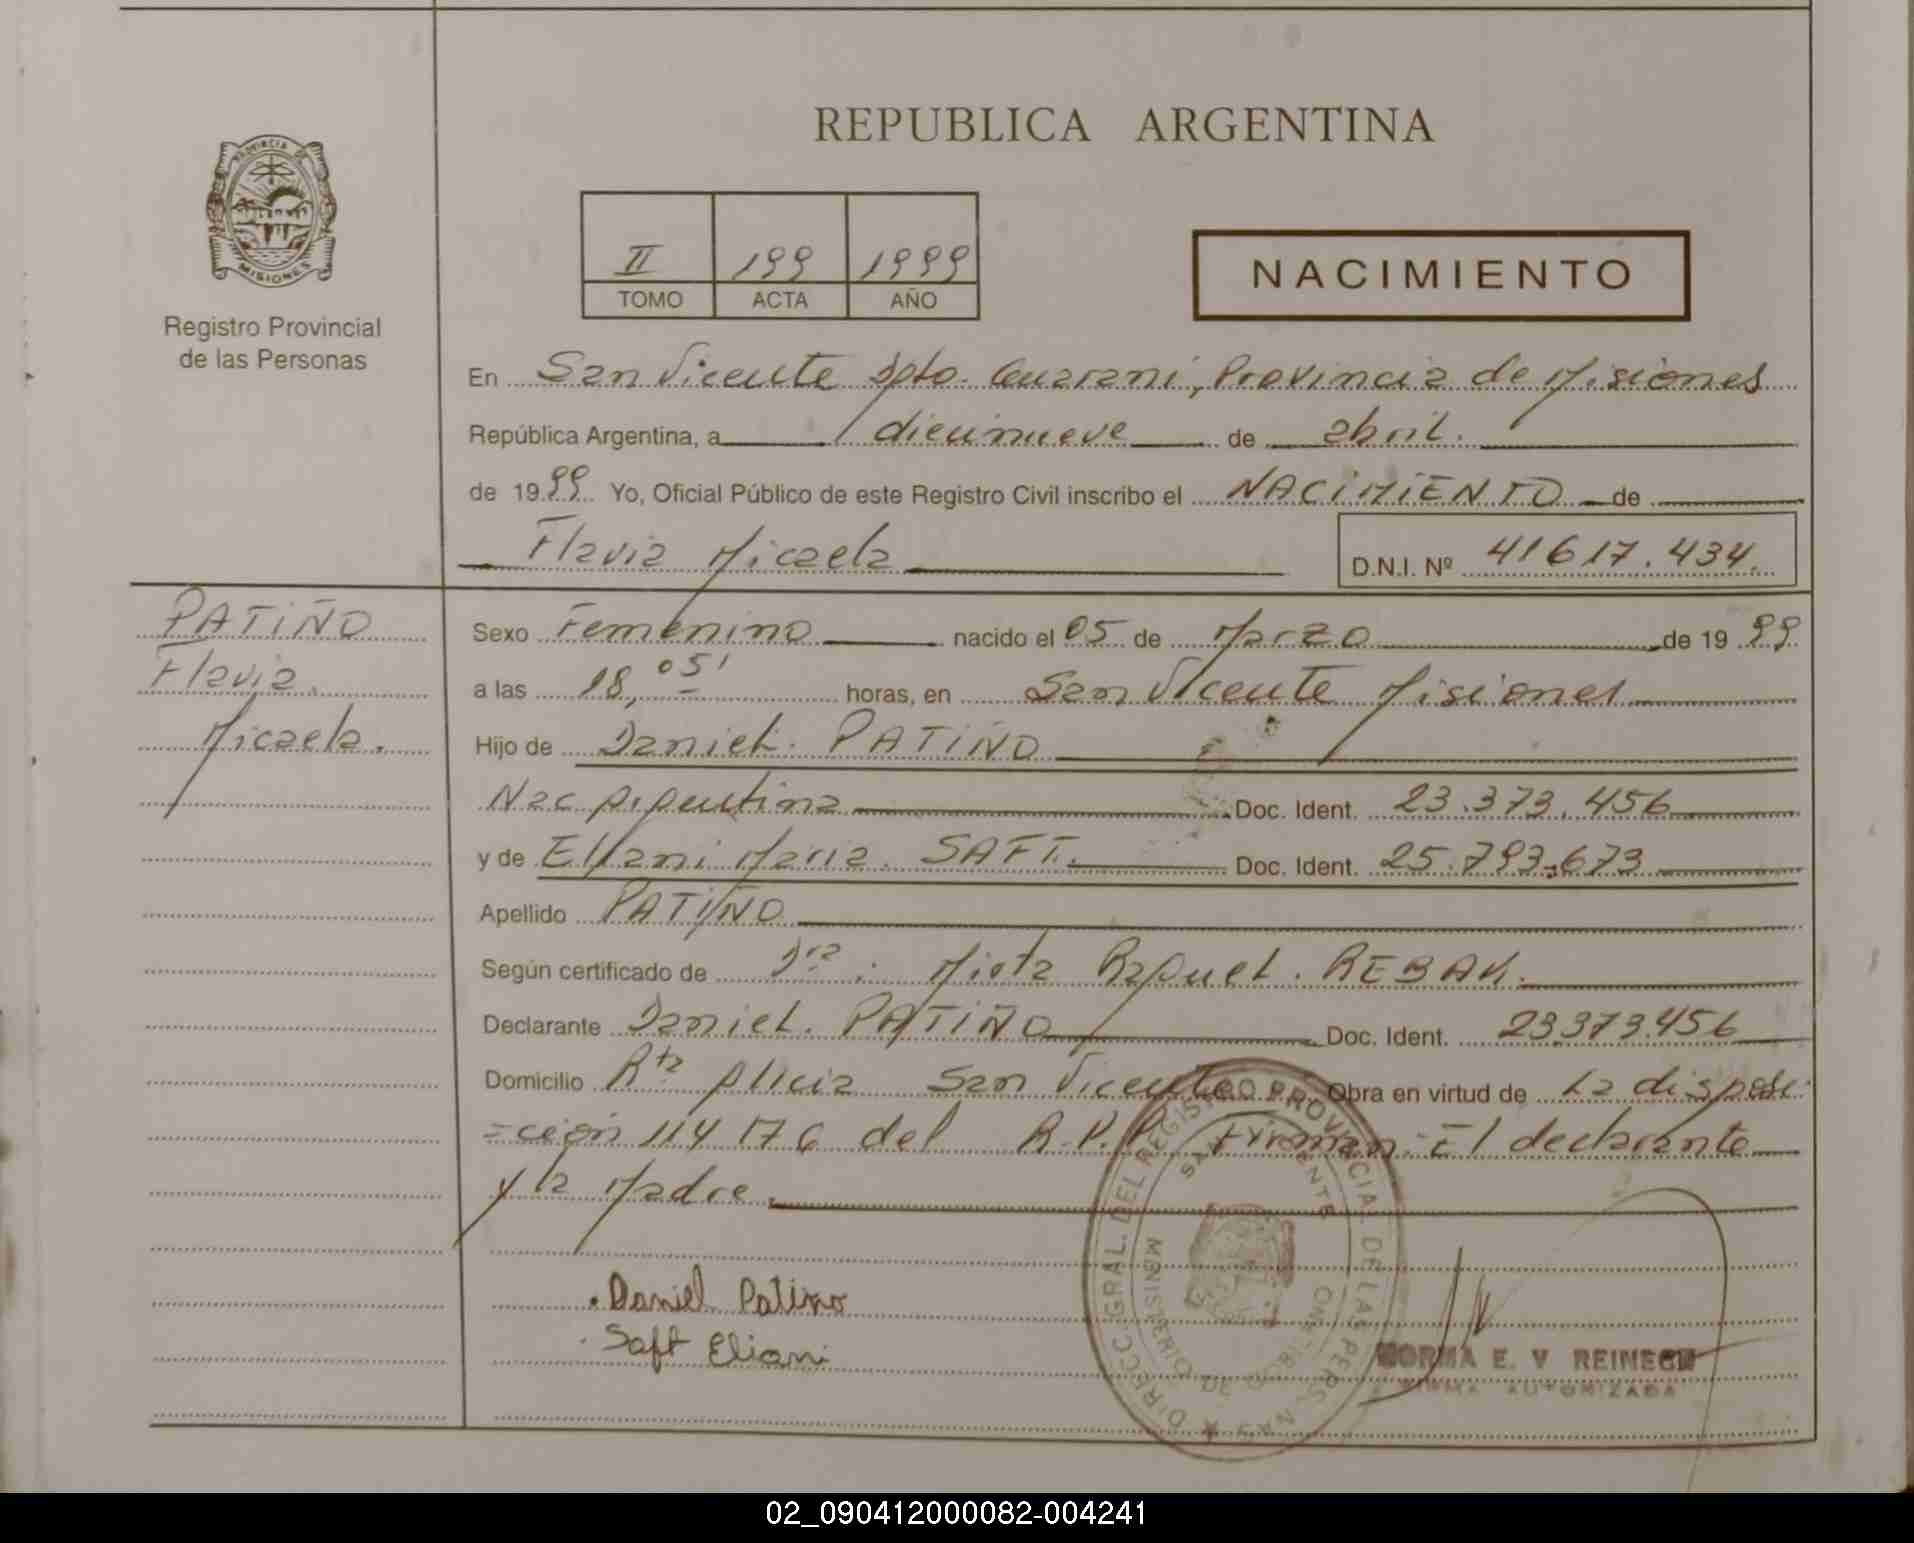 REPUBLICA ARGENTINA
PROVINCIA DE
MISIONES
Registro Provincial
de las Personas
II 199 1999
TOMO ACTA AÑO
NACIMIENTO
En San Vicente Dpto. Guarani, Provincia de Misiones
República Argentina, a diecinueve de abril.
de 1999 Yo, Oficial Público de este Registro Civil inscribo el NACIMIENTO de
Flavia Micaela
D.N.I. Nº 41617.434.
PATIÑO
Flavia.
Micaela.
Sexo Femenino nacido el 05 de Marzo de 1999
a las 18,05' horas, en San Vicente Misiones
Hijo de Daniel. PATIÑO
Nac Argentina Doc. Ident. 23.373.456
y de Eliani Maria. SAFT. Doc. Ident. 25.793.673
Apellido PATIÑO
Según certificado de Dra. Mirta Raquel.
Declarante Daniel. PATIÑO Doc. Ident. 23.373.456
Domicilio Rta Alicia San Vicente Obra en virtud de La disposi
=ción 114 176 del R.P.P. Firman: El declarante
y la Madre.
Daniel Patino
Saft Eliani
DIRECC. GRAL. DEL REGISTRO PROVINCIAL DE LAS PERS.
SAN VICENTE
MISIONES
NORMA E. V REINEGH
FIRMA AUTORIZADA
02_090412000082-004241